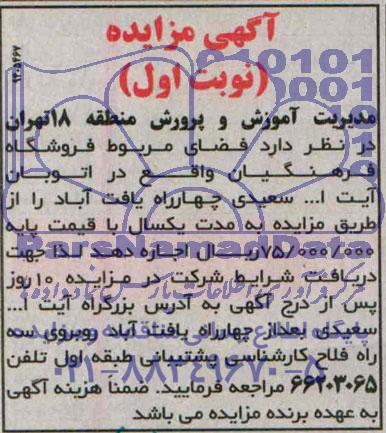 آگهی مزایده
(نوبت اول)
مدیریت آموزش و پرورش منطقه ۱۸تهران
در نظر دارد فضای مربوط فروشگاه
فرهنگیان واقع در اتوبان
آیت ا... سعیدی چهارراه یافت آباد را از
طریق مزایده به مدت یکسال با قیمت پایه
۷۵/۰۰۰/۰۰۰ریال اجاره دهد لذا جهت
دریافت شرایط شرکت در مزایده ۱۰ روز
پس از درج آگهی به آدرس بزرگراه آیت ا...
سعیدی بعداز چهارراه یافت آباد روبروی سه
راه فلاح کارشناسی پشتیبانی طبقه اول تلفن
۶۶۲۰۳۰۶۵ مراجعه فرمایید. ضمناً هزینه آگهی
به عهده برنده مزایده می باشد
ParsNamadData
۰۲۱-۸۸۳۴۹۶۷۰-۵